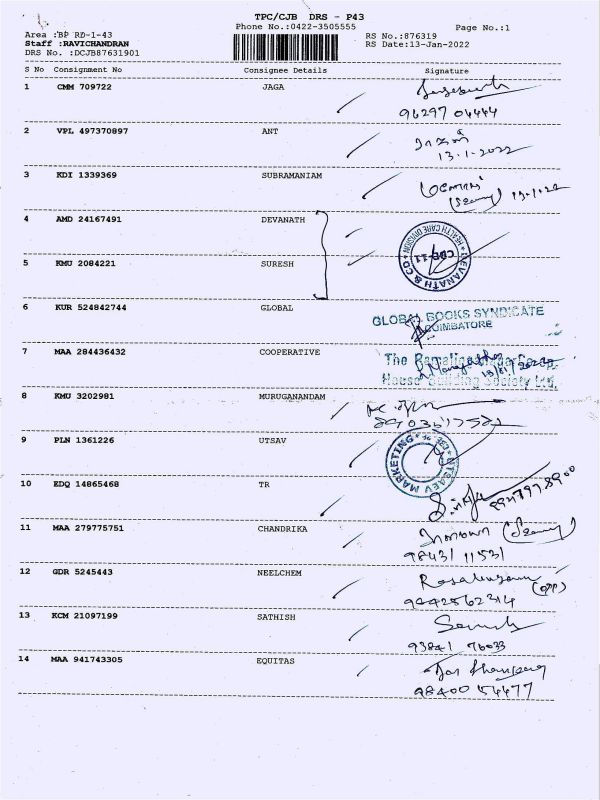 TPC/CJB DRS - P43
Phone No.:0422-3505555
Page No.:1
Area :BP RD-1-43
RS No.:876319
Staff :RAVICHANDRAN
RS Date:13-Jan-2022
DRS No. :DCJB87631901
S No Consignment No Consignee Details Signature
1 CMM 709722 JAGA
96297 04444
2 VPL 497370897 ANT
13-1-2022
3 KDI 1339369 SUBRAMANIAM
13-1-22
4 AMD 24167491 DEVANATH
DEVANATH & CO * HEALTH CARE DIVISION *
CBE-11
5 KMU 2084221 SURESH
6 KUR 524842744 GLOBAL
GLOBAL BOOKS SYNDICATE
COIMBATORE
7 MAA 284436432 COOPERATIVE
The Ramalinga Co-op.
House Building Society Ltd.
8 KMU 3202981 MURUGANANDAM
9 PLN 1361226 UTSAV
UTSAEV MARKETING
10 EDQ 14865468 TR
11 MAA 279775751 CHANDRIKA
98431 11531
12 GDR 5245443 NEELCHEM
9442562314
13 KCM 21097199 SATHISH
93841 76033
14 MAA 941743305 EQUITAS
98400 54477